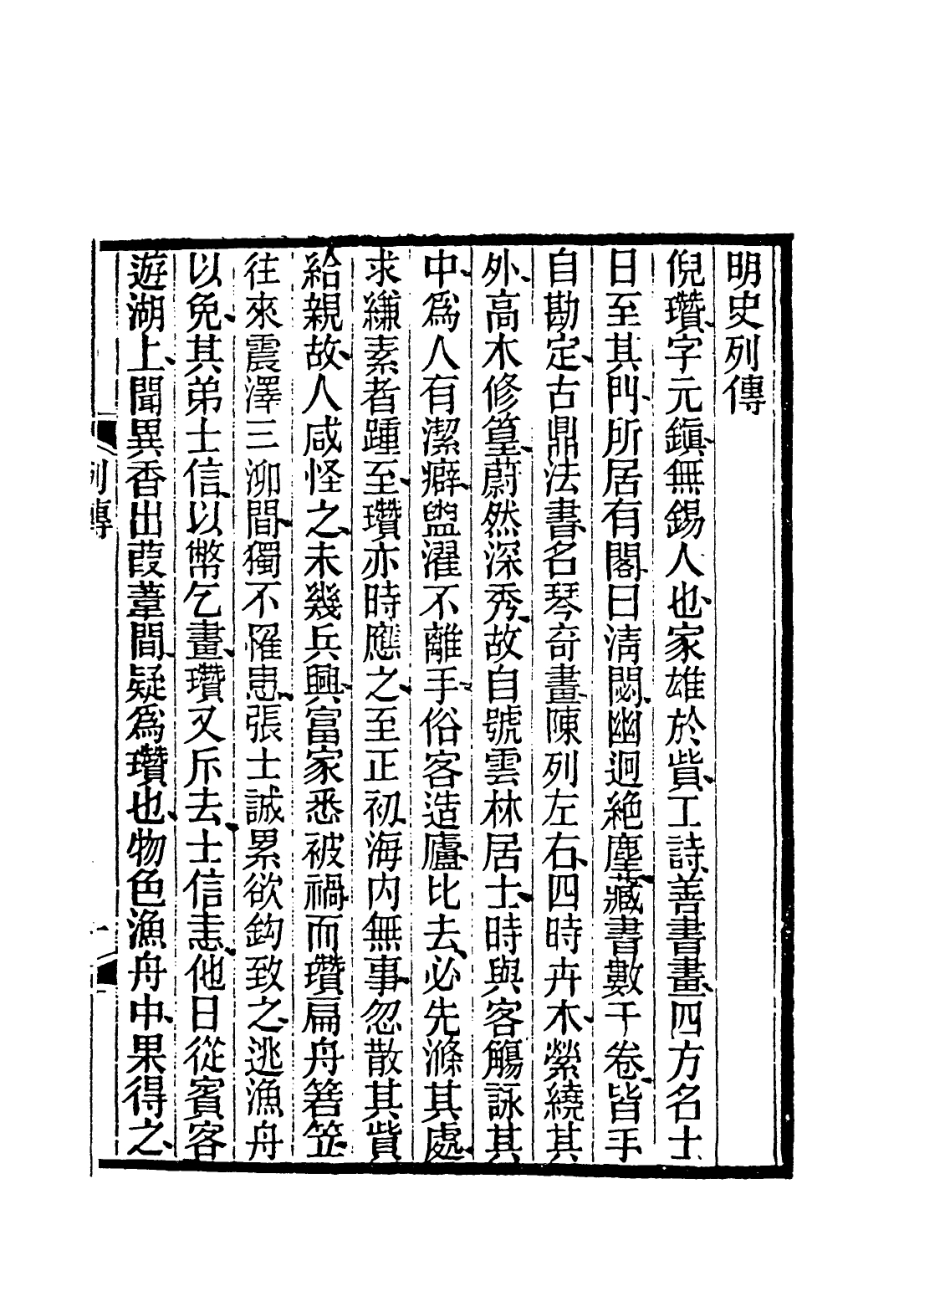 明史列傳
倪瓚字元鎭無錫人也家雄於貲工詩善書畫四方名士
日至其門所居有閣曰淸閟幽迥絶塵藏書數千卷皆手
自勘定古鼎法書名琴奇畫陳列左右四時卉木縈繞其
外高木修篁蔚然深秀故自號雲林居士時與客觴詠其
中爲人有潔癖盥濯不離手俗客造廬比去必先滌其處
求縑素者踵至瓚亦時應之至正初海内無事忽散其貲
給親故人咸怪之未幾兵興富家悉被禍而瓚扁舟箬笠
往來震澤三泖間獨不罹患張士誠累欲鈎致之逃漁舟
以免其弟士信以幣乞畫瓚又斥去士信恚他日從賓客
遊湖上聞異香出葭葦間疑爲瓚也物色漁舟中果得之
列傳
一